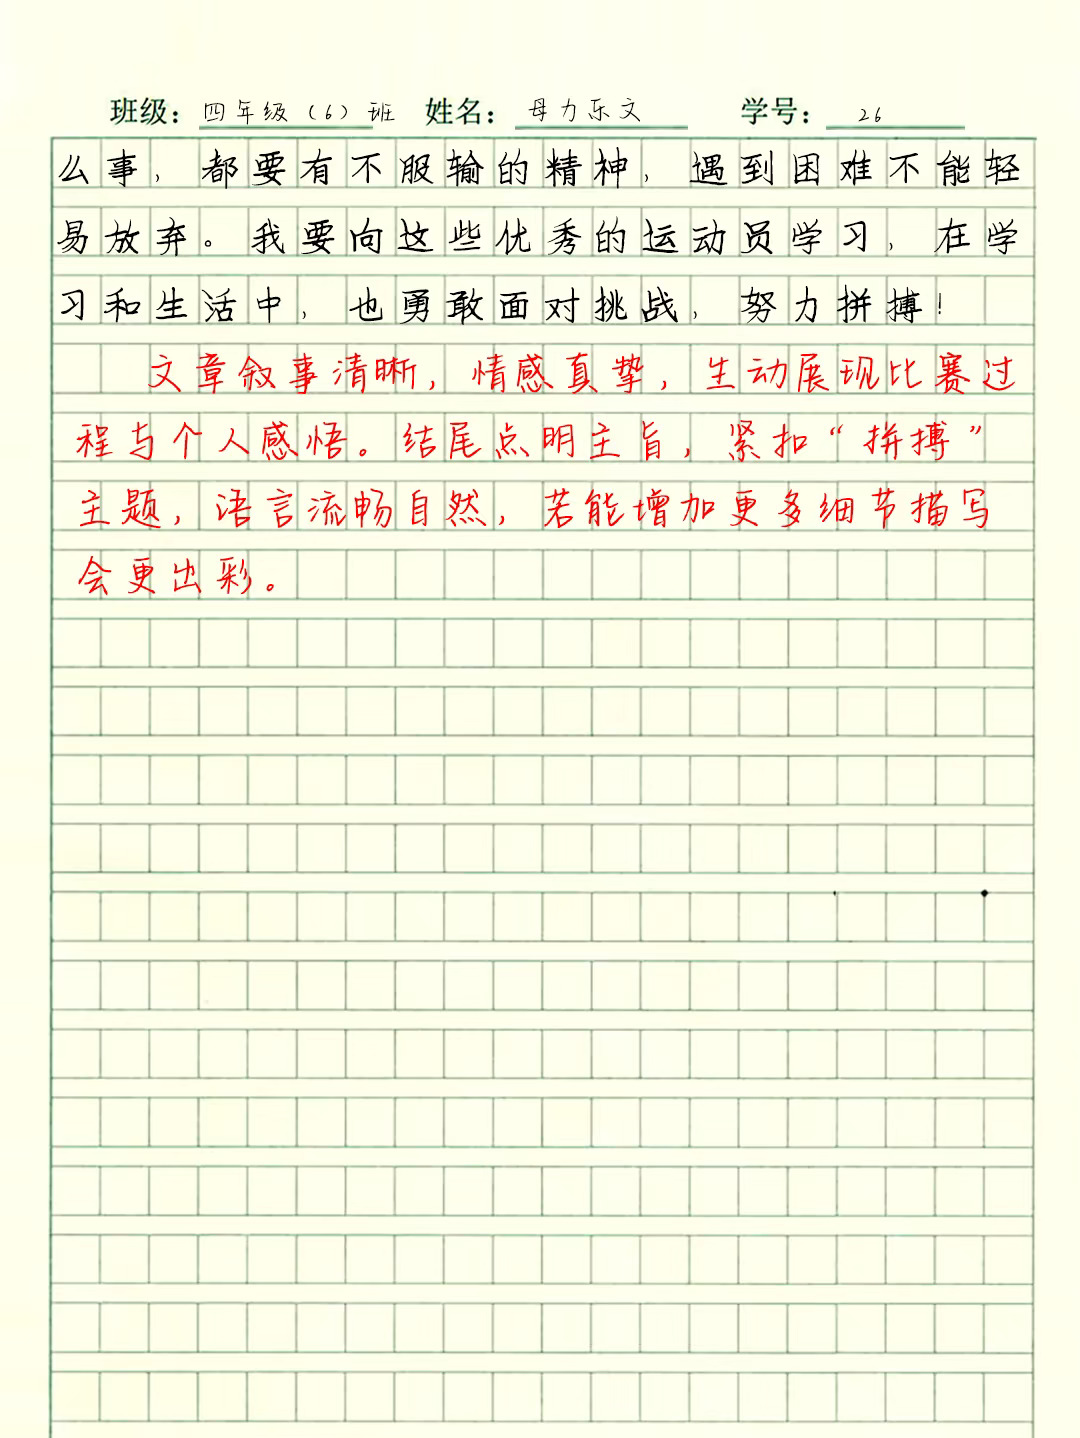 班级：四年级（6）班 姓名：母力乐文 学号：26
么事，都要有不服输的精神，遇到困难不能轻
易放弃。我要向这些优秀的运动员学习，在学
习和生活中，也勇敢面对挑战，努力拼搏！
文章叙事清晰，情感真挚，生动展现比赛过
程与个人感悟。结尾点明主旨，紧扣“拼搏”
主题，语言流畅自然，若能增加更多细节描写
会更出彩。